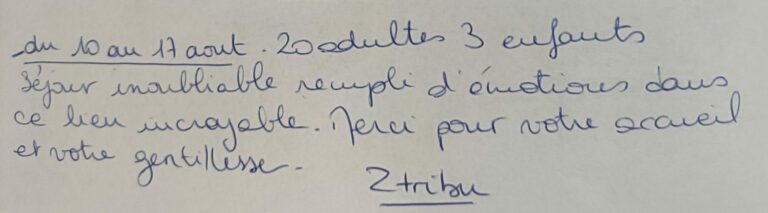 du 10 au 17 aout. 20 adultes 3 enfants
Séjour inoubliable rempli d'émotions dans
ce lieu incroyable. Merci pour votre accueil
et votre gentillesse.
Ztribu